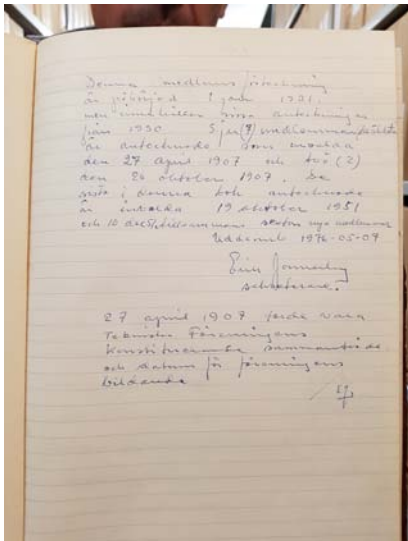 Denna medlems förteckning
är påbörjad 1 jan 1921.
men innehåller vissa anteckningar
från 1930
är antecknade som invalda
den 27 april 1907 och två (2)
den 26 oktober 1907. De
sista i denna bok antecknade
är invalda 19 oktober 1951
och 10 dec tillsammans sexton nya medlemmar
1976-05-07
Erik
sekreterare.
27 april 1907 torde vara
Tekniska Föreningens
Konstituerande sammanträde
och datum för föreningens
bildande